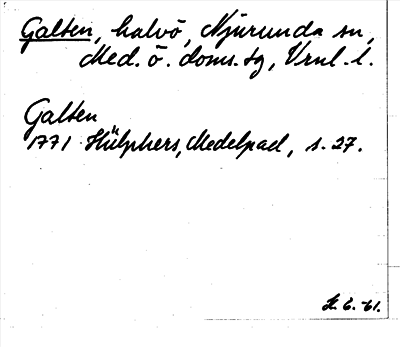 Galten, halvö, Njurunda sn,
Med. ö. doms. tg, Vrnl. l.
Galten
1771 Hülphers, Medelpad, s. 27.
6. -61.